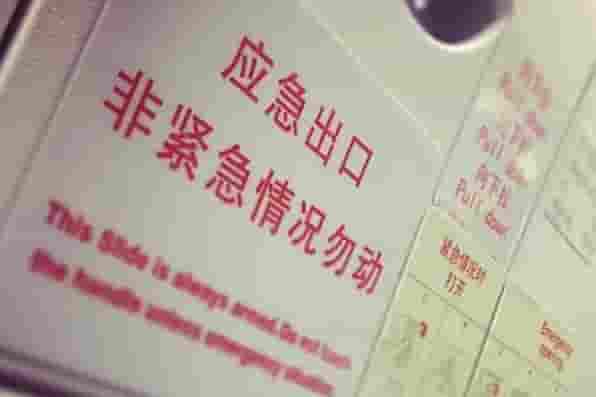 应急出口
非紧急情况勿动
This Slide is always armed. Do not touch
the handle unless emergency situation.
向下拉
Pull down
向下拉
Pull down
向下拉
Pull down
紧急情况时
打开
Emergency
opening